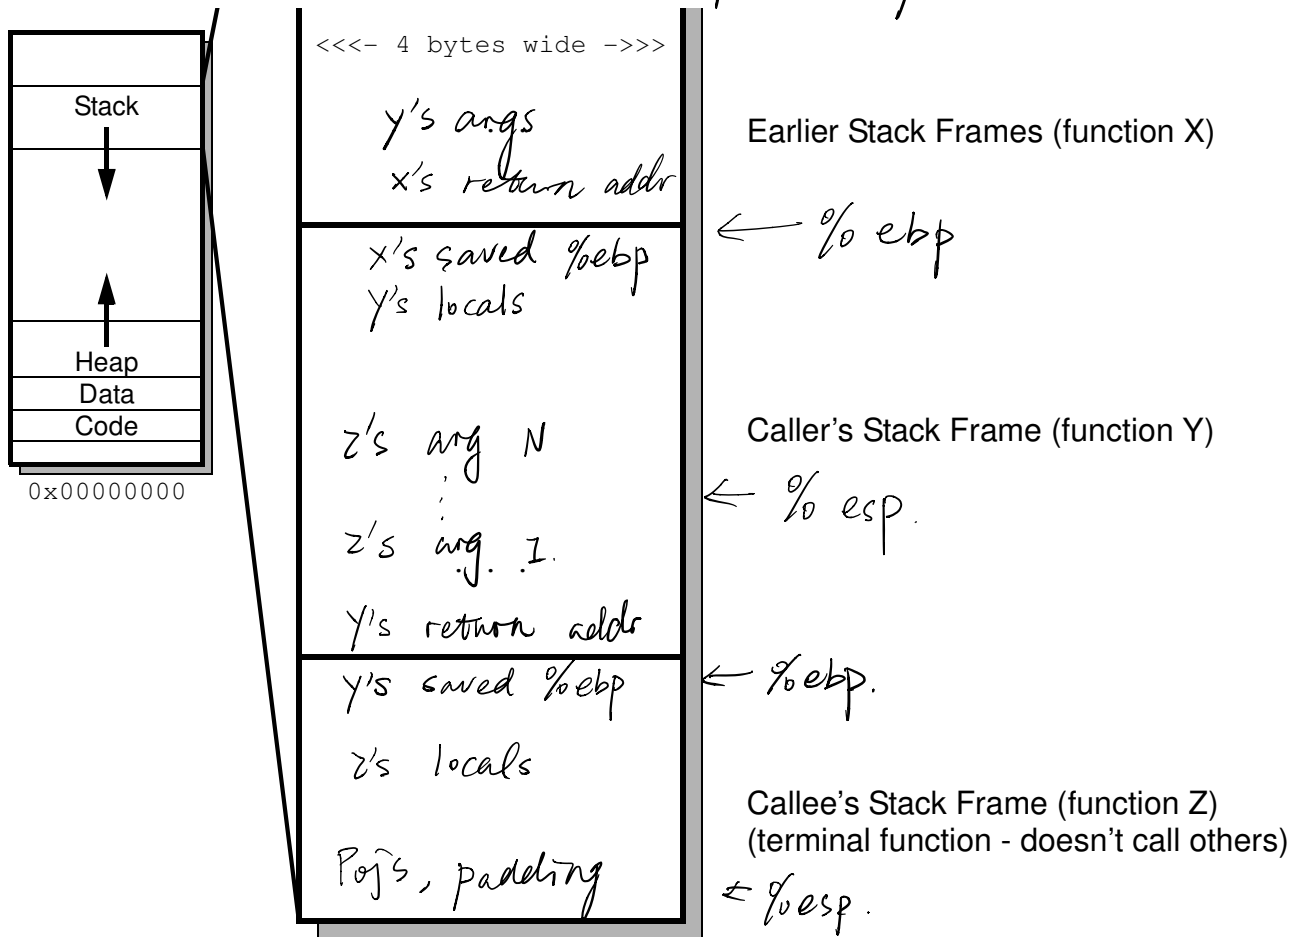 Stack
Heap
Data
Code
0x00000000
<<<- 4 bytes wide ->>>
y's args
x's return addr
x's saved %ebp
y's locals
z's arg N
z's arg 1.
y's return addr
y's saved %ebp
z's locals
padding
Earlier Stack Frames (function X)
← % ebp
Caller's Stack Frame (function Y)
← % esp.
← %ebp.
Callee's Stack Frame (function Z)
(terminal function - doesn't call others)
← %esp.